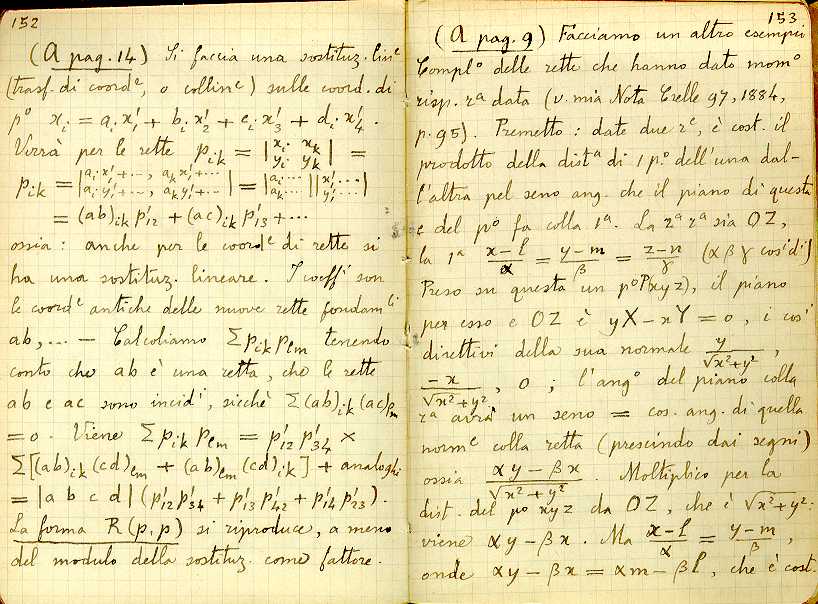 152
(A pag. 14) Si faccia una sostituz. linᵉ
(trasf. di coordᵉ, o collinᵉ) sulle coord. di
pᵒ xᵢ = aᵢ x'₁ + bᵢ x'₂ + cᵢ x'₃ + dᵢ x'₄.
Verrà per le rette p_{ik} = |xᵢ x_k / yᵢ y_k| =
p_{ik} = |aᵢ x'₁ + ..., a_k x'₁ + ... / aᵢ y'₁ + ..., a_k y'₁ + ...| = |aᵢ ... / a_k ...| |x'₁ ... / y'₁ ...|
= (ab)_{ik} p'₁₂ + (ac)_{ik} p'₁₃ + ...
ossia: anche per le coordᵉ di rette si
ha una sostituz. lineare. I coeffⁱ son
le coordᵉ antiche delle nuove rette fondamˡⁱ
ab, ... — Calcoliamo Σ p_{ik} p_{lm} tenendo
conto che ab è una retta, che le rette
ab e ac sono incidⁱ, sicchè Σ (ab)_{ik} (ac)_{lm}
= 0. Viene Σ p_{ik} p_{lm} = p'₁₂ p'₃₄ ×
Σ [(ab)_{ik} (cd)_{lm} + (ab)_{lm} (cd)_{ik}] + analoghi
= |a b c d| (p'₁₂ p'₃₄ + p'₁₃ p'₄₂ + p'₁₄ p'₂₃).
La forma R(p,p) si riproduce, a meno
del modulo della sostituz. come fattore.
153
(A pag. 9) Facciamo un altro esempio
Complᵒ delle rette che hanno dato momᵒ
risp. rᵃ data (v. mia Nota Crelle 97, 1884,
p. 95). Premetto: date due rᵉ, è cost. il
prodotto della distᵃ di 1 pᵒ dell'una dal-
l'altra pel seno ang. che il piano di questa
e del pᵒ fa colla 1ᵃ. La 2ᵃ rᵃ sia OZ,
la 1ᵃ (x−l)/α = (y−m)/β = (z−n)/γ (α β γ cosⁱ dⁱ)
Preso su questa un pᵒ P(xyz), il piano
per esso e OZ è yX − xY = 0, i cosⁱ
direttivi della sua normale y/√(x²+y²),
−x/√(x²+y²), 0; l'angᵒ del piano colla
rᵃ avrà un seno = cos. ang. di quella
normᵉ colla retta (prescindo dai segni)
ossia (αy − βx)/√(x²+y²). Moltiplico per la
dist. del pᵒ xyz da OZ, che è √(x²+y²):
viene αy − βx. Ma (x−l)/α = (y−m)/β,
onde αy − βx = αm − βl, che è cost.